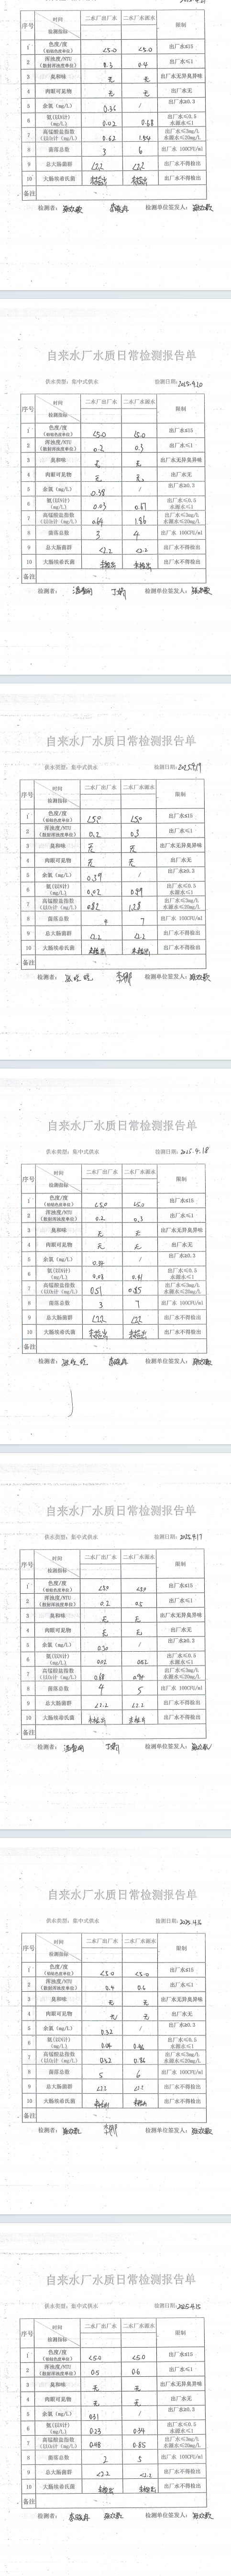 时间 二水厂出厂水 二水厂水源水 限制
序号 检测指标
1 色度/度(铂钴色度单位) <5.0 <5.0 出厂水≤15
2 浑浊度/NTU(散射浑浊度单位) 0.4 出厂水≤1
3 臭和味 无 无 出厂水无异臭异味
4 肉眼可见物 无 无 出厂水无
5 余氯(mg/L) / 出厂水≥0.3
6 氨(以N计)(mg/L) 0.02 0.68 出厂水≤0.5 水源水≤1
7 高锰酸盐指数(以O₂计)(mg/L) 0.62 出厂水≤3mg/L 水源水≤20mg/L
8 菌落总数 3 6 出厂水 100CFU/ml
9 总大肠菌群 <2.2 <2.2 出厂水不得检出
10 大肠埃希氏菌 未检出 未检出 出厂水不得检出
备注
检测者: 检测单位签发人:
自来水厂水质日常检测报告单
供水类型:集中式供水 检测日期:2025.4.20
时间 二水厂出厂水 二水厂水源水 限制
序号 检测指标
1 色度/度(铂钴色度单位) <5.0 <5.0 出厂水≤15
2 浑浊度/NTU(散射浑浊度单位) 0.2 0.3 出厂水≤1
3 臭和味 无 无 出厂水无异臭异味
4 肉眼可见物 无 无 出厂水无
5 余氯(mg/L) 0.38 / 出厂水≥0.3
6 氨(以N计)(mg/L) 0.03 0.67 出厂水≤0.5 水源水≤1
7 高锰酸盐指数(以O₂计)(mg/L) 0.64 1.86 出厂水≤3mg/L 水源水≤20mg/L
8 菌落总数 3 4 出厂水 100CFU/ml
9 总大肠菌群 <2.2 <2.2 出厂水不得检出
10 大肠埃希氏菌 未检出 未检出 出厂水不得检出
备注
检测者: 检测单位签发人:
自来水厂水质日常检测报告单
供水类型:集中式供水 检测日期:2025.4.19
时间 二水厂出厂水 二水厂水源水 限制
序号 检测指标
1 色度/度(铂钴色度单位) <5.0 <5.0 出厂水≤15
2 浑浊度/NTU(散射浑浊度单位) 0.2 0.3 出厂水≤1
3 臭和味 无 无 出厂水无异臭异味
4 肉眼可见物 无 无 出厂水无
5 余氯(mg/L) 0.39 / 出厂水≥0.3
6 氨(以N计)(mg/L) 0.02 出厂水≤0.5 水源水≤1
7 高锰酸盐指数(以O₂计)(mg/L) 0.82 1.28 出厂水≤3mg/L 水源水≤20mg/L
8 菌落总数 4 7 出厂水 100CFU/ml
9 总大肠菌群 <2.2 <2.2 出厂水不得检出
10 大肠埃希氏菌 未检出 未检出 出厂水不得检出
备注
检测者: 检测单位签发人:
自来水厂水质日常检测报告单
供水类型:集中式供水 检测日期:2025.4.18
时间 二水厂出厂水 二水厂水源水 限制
序号 检测指标
1 色度/度(铂钴色度单位) <5.0 <5.0 出厂水≤15
2 浑浊度/NTU(散射浑浊度单位) 0.2 0.3 出厂水≤1
3 臭和味 无 无 出厂水无异臭异味
4 肉眼可见物 无 无 出厂水无
5 余氯(mg/L) / 出厂水≥0.3
6 氨(以N计)(mg/L) 出厂水≤0.5 水源水≤1
7 高锰酸盐指数(以O₂计)(mg/L) 0.51 0.85 出厂水≤3mg/L 水源水≤20mg/L
8 菌落总数 3 7 出厂水 100CFU/ml
9 总大肠菌群 <2.2 <2.2 出厂水不得检出
10 大肠埃希氏菌 未检出 未检出 出厂水不得检出
备注
检测者: 检测单位签发人:
自来水厂水质日常检测报告单
供水类型:集中式供水 检测日期:2025.4.17
时间 二水厂出厂水 二水厂水源水 限制
序号 检测指标
1 色度/度(铂钴色度单位) <5.0 <5.0 出厂水≤15
2 浑浊度/NTU(散射浑浊度单位) 0.2 0.5 出厂水≤1
3 臭和味 无 无 出厂水无异臭异味
4 肉眼可见物 无 无 出厂水无
5 余氯(mg/L) 0.30 / 出厂水≥0.3
6 氨(以N计)(mg/L) 0.02 0.62 出厂水≤0.5 水源水≤1
7 高锰酸盐指数(以O₂计)(mg/L) 0.68 出厂水≤3mg/L 水源水≤20mg/L
8 菌落总数 4 5 出厂水 100CFU/ml
9 总大肠菌群 <2.2 <2.2 出厂水不得检出
10 大肠埃希氏菌 未检出 未检出 出厂水不得检出
备注
检测者: 检测单位签发人:
自来水厂水质日常检测报告单
供水类型:集中式供水 检测日期:2025.4.16
时间 二水厂出厂水 二水厂水源水 限制
序号 检测指标
1 色度/度(铂钴色度单位) <5.0 <5.0 出厂水≤15
2 浑浊度/NTU(散射浑浊度单位) 0.4 0.6 出厂水≤1
3 臭和味 无 无 出厂水无异臭异味
4 肉眼可见物 无 无 出厂水无
5 余氯(mg/L) 0.32 / 出厂水≥0.3
6 氨(以N计)(mg/L) 0.04 出厂水≤0.5 水源水≤1
7 高锰酸盐指数(以O₂计)(mg/L) 0.52 0.86 出厂水≤3mg/L 水源水≤20mg/L
8 菌落总数 5 6 出厂水 100CFU/ml
9 总大肠菌群 <2.2 <2.2 出厂水不得检出
10 大肠埃希氏菌 未检出 未检出 出厂水不得检出
备注
检测者: 检测单位签发人:
自来水厂水质日常检测报告单
供水类型:集中式供水 检测日期:2025.4.15
时间 二水厂出厂水 二水厂水源水 限制
序号 检测指标
1 色度/度(铂钴色度单位) <5.0 <5.0 出厂水≤15
2 浑浊度/NTU(散射浑浊度单位) 0.5 0.6 出厂水≤1
3 臭和味 无 无 出厂水无异臭异味
4 肉眼可见物 无 无 出厂水无
5 余氯(mg/L) 0.31 / 出厂水≥0.3
6 氨(以N计)(mg/L) 0.23 0.34 出厂水≤0.5 水源水≤1
7 高锰酸盐指数(以O₂计)(mg/L) 0.48 0.85 出厂水≤3mg/L 水源水≤20mg/L
8 菌落总数 2 5 出厂水 100CFU/ml
9 总大肠菌群 <2.2 <2.2 出厂水不得检出
10 大肠埃希氏菌 未检出 未检出 出厂水不得检出
备注
检测者: 检测单位签发人: